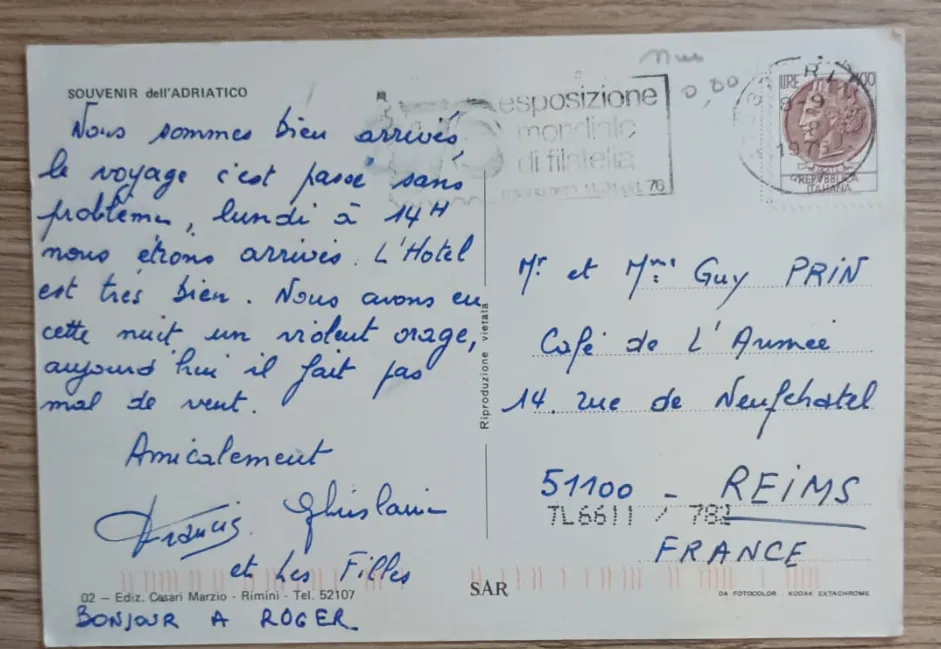 SOUVENIR dell'ADRIATICO
Nous sommes bien arrivés
le voyage c'est passé sans
problème, lundi à 14H
nous étions arrivés. L'Hotel
est très bien. Nous avons eu
cette nuit un violent orage,
aujourd'hui il fait pas
mal de vent.
Amicalement
Francis Ghislaine
et Les Filles
02 - Ediz. Casari Marzio - Rimini - Tel. 52107
BONJOUR A ROGER
Riproduzione vietata
SAR
0,80
esposizione
mondiale
di filatelia
76
LIRE 100
8-9
197
REPVBBLICA
ITALIANA
Mr et Mme Guy PRIN
Café de L'Armée
14. rue de Neufchatel
51100 - REIMS
TL6611 / 782
FRANCE
DA FOTOCOLOR KODAK EXTACHROME